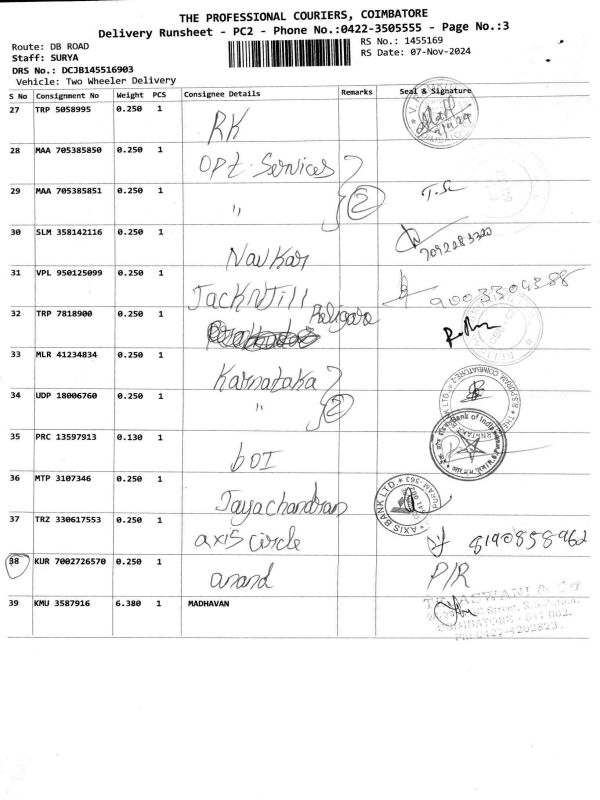 THE PROFESSIONAL COURIERS, COIMBATORE
Delivery Runsheet - PC2 - Phone No.:0422-3505555 - Page No.:3
Route: DB ROAD
RS No.: 1455169
Staff: SURYA
RS Date: 07-Nov-2024
DRS No.: DCJB145516903
Vehicle: Two Wheeler Delivery
S No Consignment No Weight PCS Consignee Details Remarks Seal & Signature
27 TRP 5058995 0.250 1
RK
28 MAA 705385850 0.250 1
OPZ Services
29 MAA 705385851 0.250 1
" 2
30 SLM 358142116 0.250 1
Navkar 7092283320
31 VPL 950125099 0.250 1
JackNJill 9003304388
32 TRP 7818900 0.250 1
Religare
33 MLR 41234834 0.250 1
Karnataka
34 UDP 18006760 0.250 1
" 2
35 PRC 13597913 0.130 1
BOI
36 MTP 3107346 0.250 1
Jayachandran
AXIS BANK LTD.
37 TRZ 330617553 0.250 1
axis circle 8190858962
38 KUR 7002726570 0.250 1
anand P/R
39 KMU 3587916 6.380 1 MADHAVAN
COIMBATORE
PH: 0422-4202823.